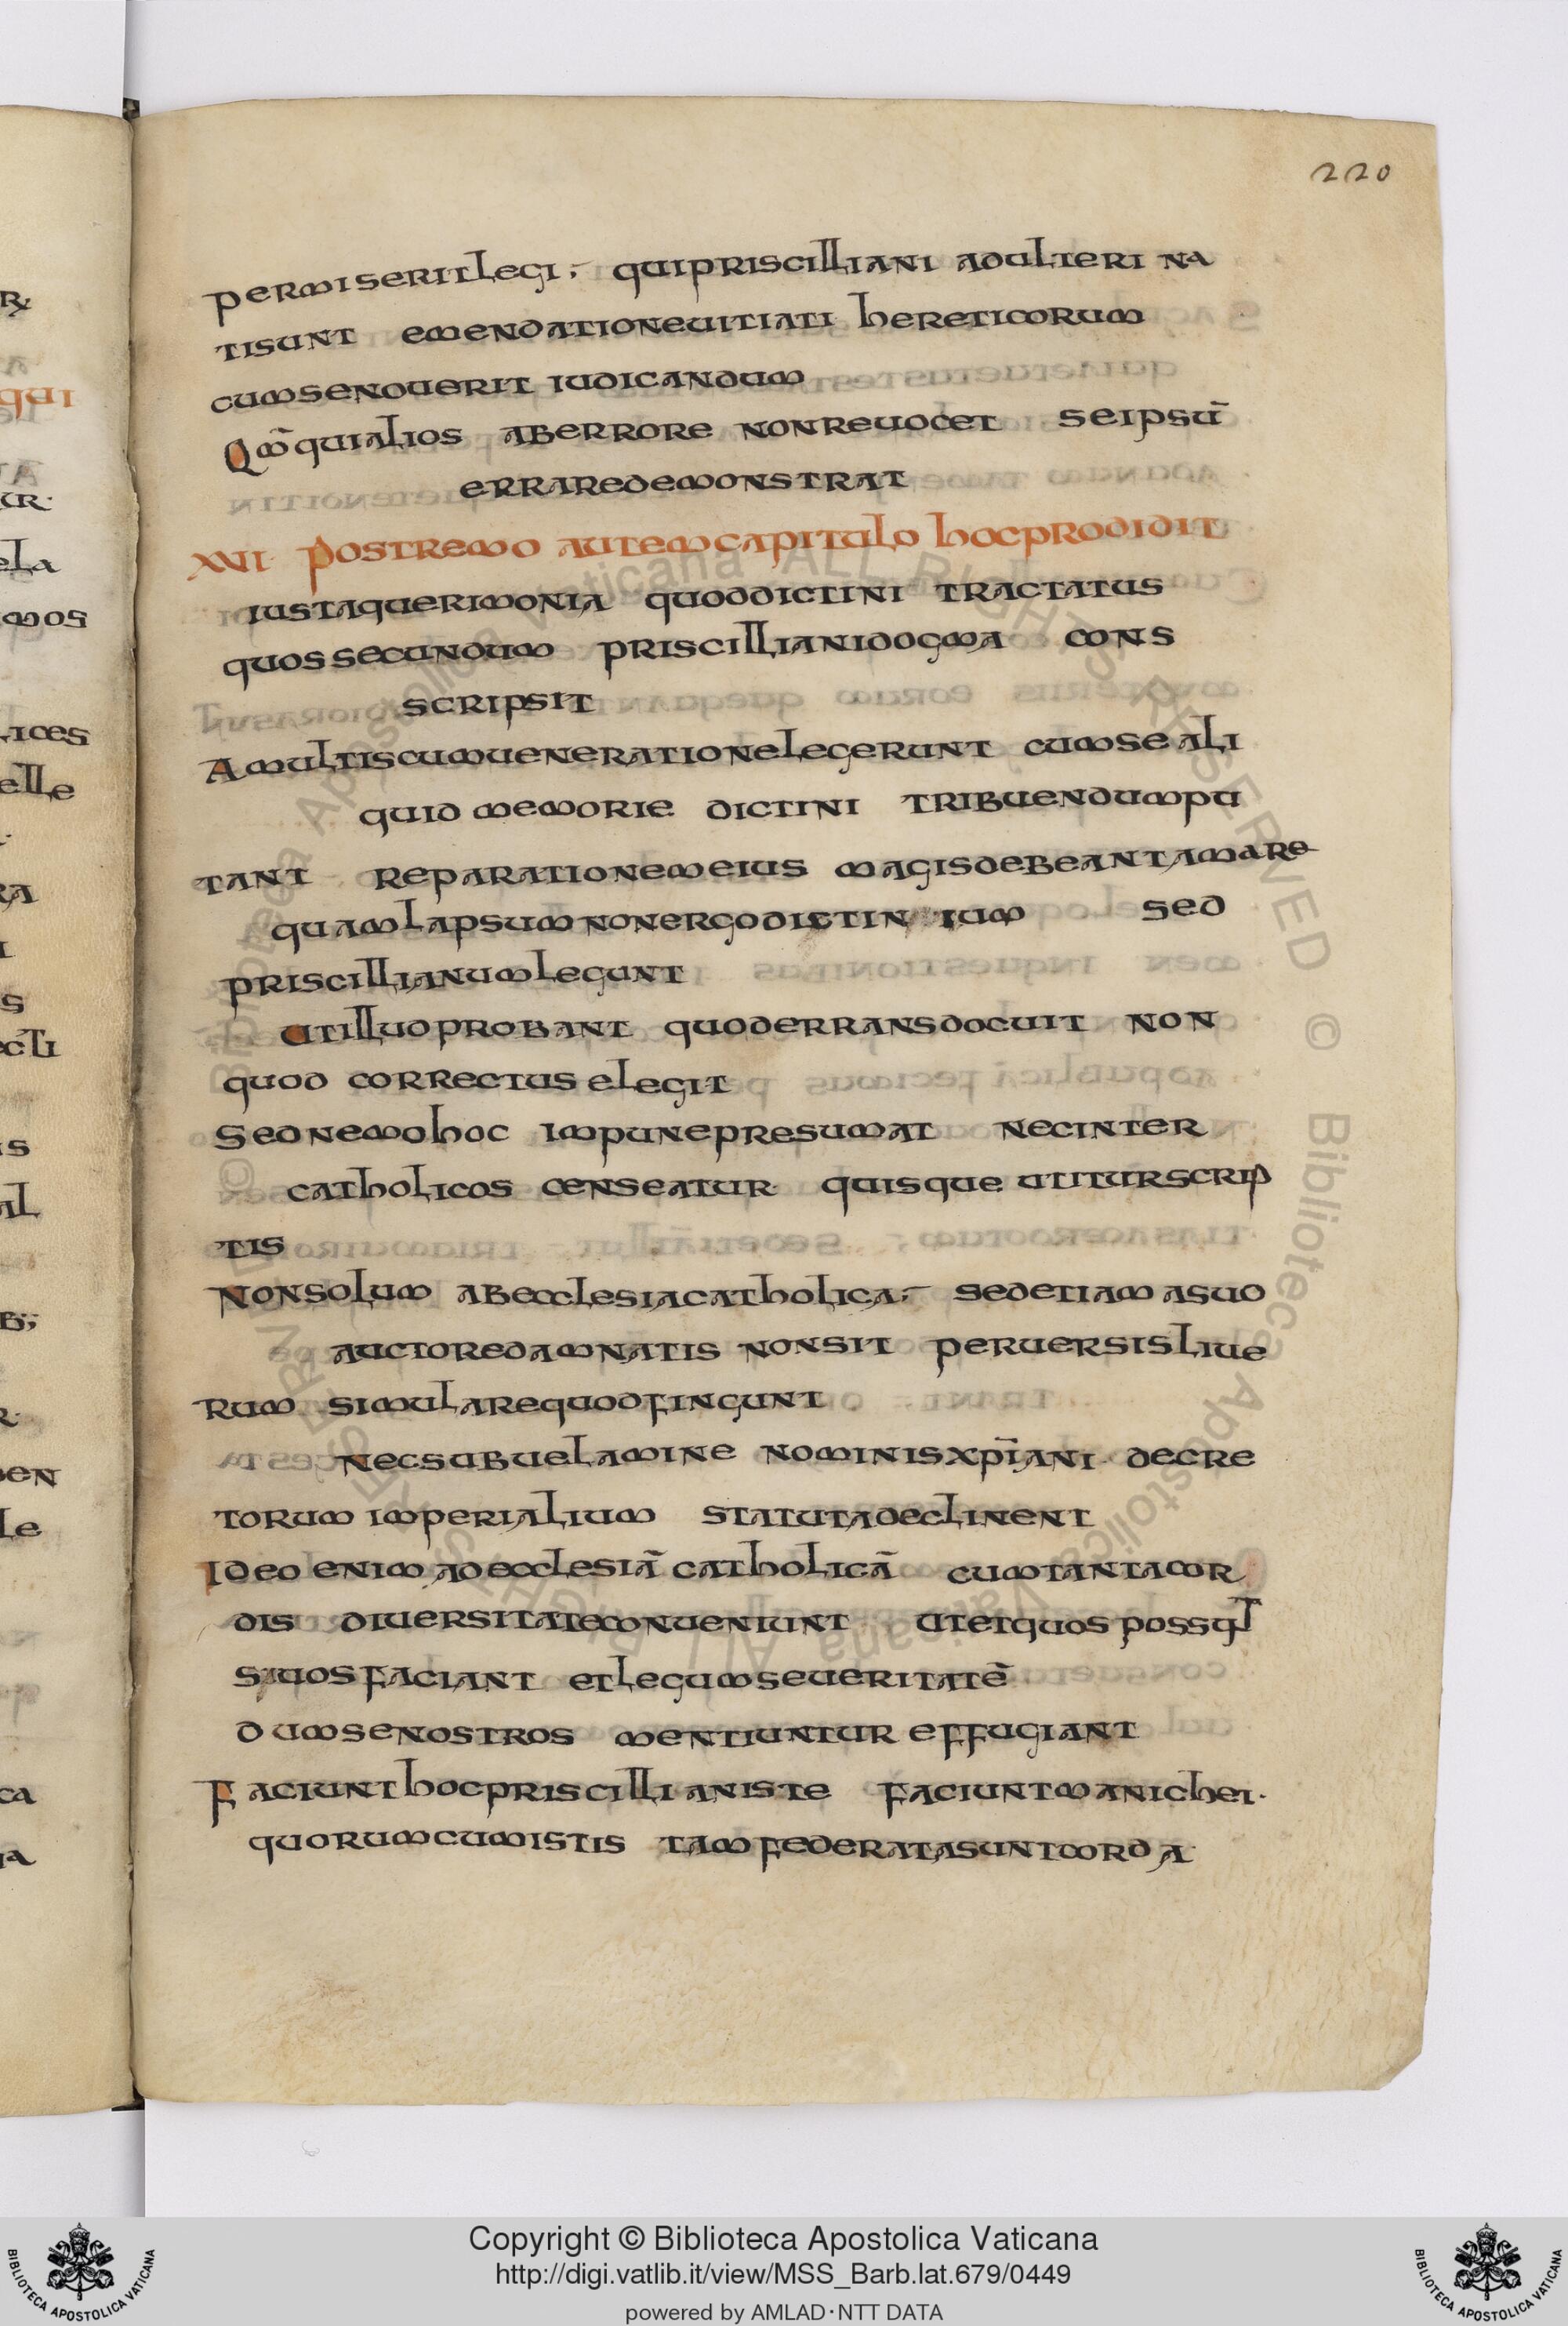 220
permiserit legi; qui priscilliani adulteri na
ti sunt emendatione uitiati hereticorum
cum se nouerit iudicandum
Qm̄ qui alios ab errore non reuocet se ipsū
errare demonstrat
XVI Postremo autem capitulo hoc prodidit
iusta querimonia quod dictini tractatus
quos secundum priscilliani dogma cons
scripsit
A multis cum ueneratione legerunt cum se ali
quid memorie dictini tribuendum pu
tant reparationem eius magis debeant amare
quam lapsum non ergo dictin ium sed
priscillianum legunt
Ut illud probant quod errans docuit non
quod correctus elegit
Sed nemo hoc impune presumat nec inter
catholicos censeatur quisque utitur scrip
tis
Non solum ab ecclesia catholica; sed etiam a suo
auctore damnatis non sit peruersis liue
rum simulare quod fingunt
nec sub uelamine nominis xp̄iani decre
torum imperialium statuta declinent
Ideo enim ad ecclesiā catholicā cum tanta cor
dis diuersitate conueniunt ut et quos poss̄t
suos faciant et legum seueritatē
dum se nostros mentiuntur effugiant
Faciunt hoc priscillianiste faciunt manichei.
quorum cum istis tam federata sunt corda
R
qui
ur.
ela
mos
lices
elle
ra
s
ecti
is
al
B;
R.
ben
le
ca
ia
Copyright © Biblioteca Apostolica Vaticana
http://digi.vatlib.it/view/MSS_Barb.lat.679/0449
powered by AMLAD·NTT DATA
BIBLIOTECA APOSTOLICA VATICANA
BIBLIOTECA APOSTOLICA VATICANA
© Biblioteca Apostolica Vaticana ALL RIGHTS RESERVED